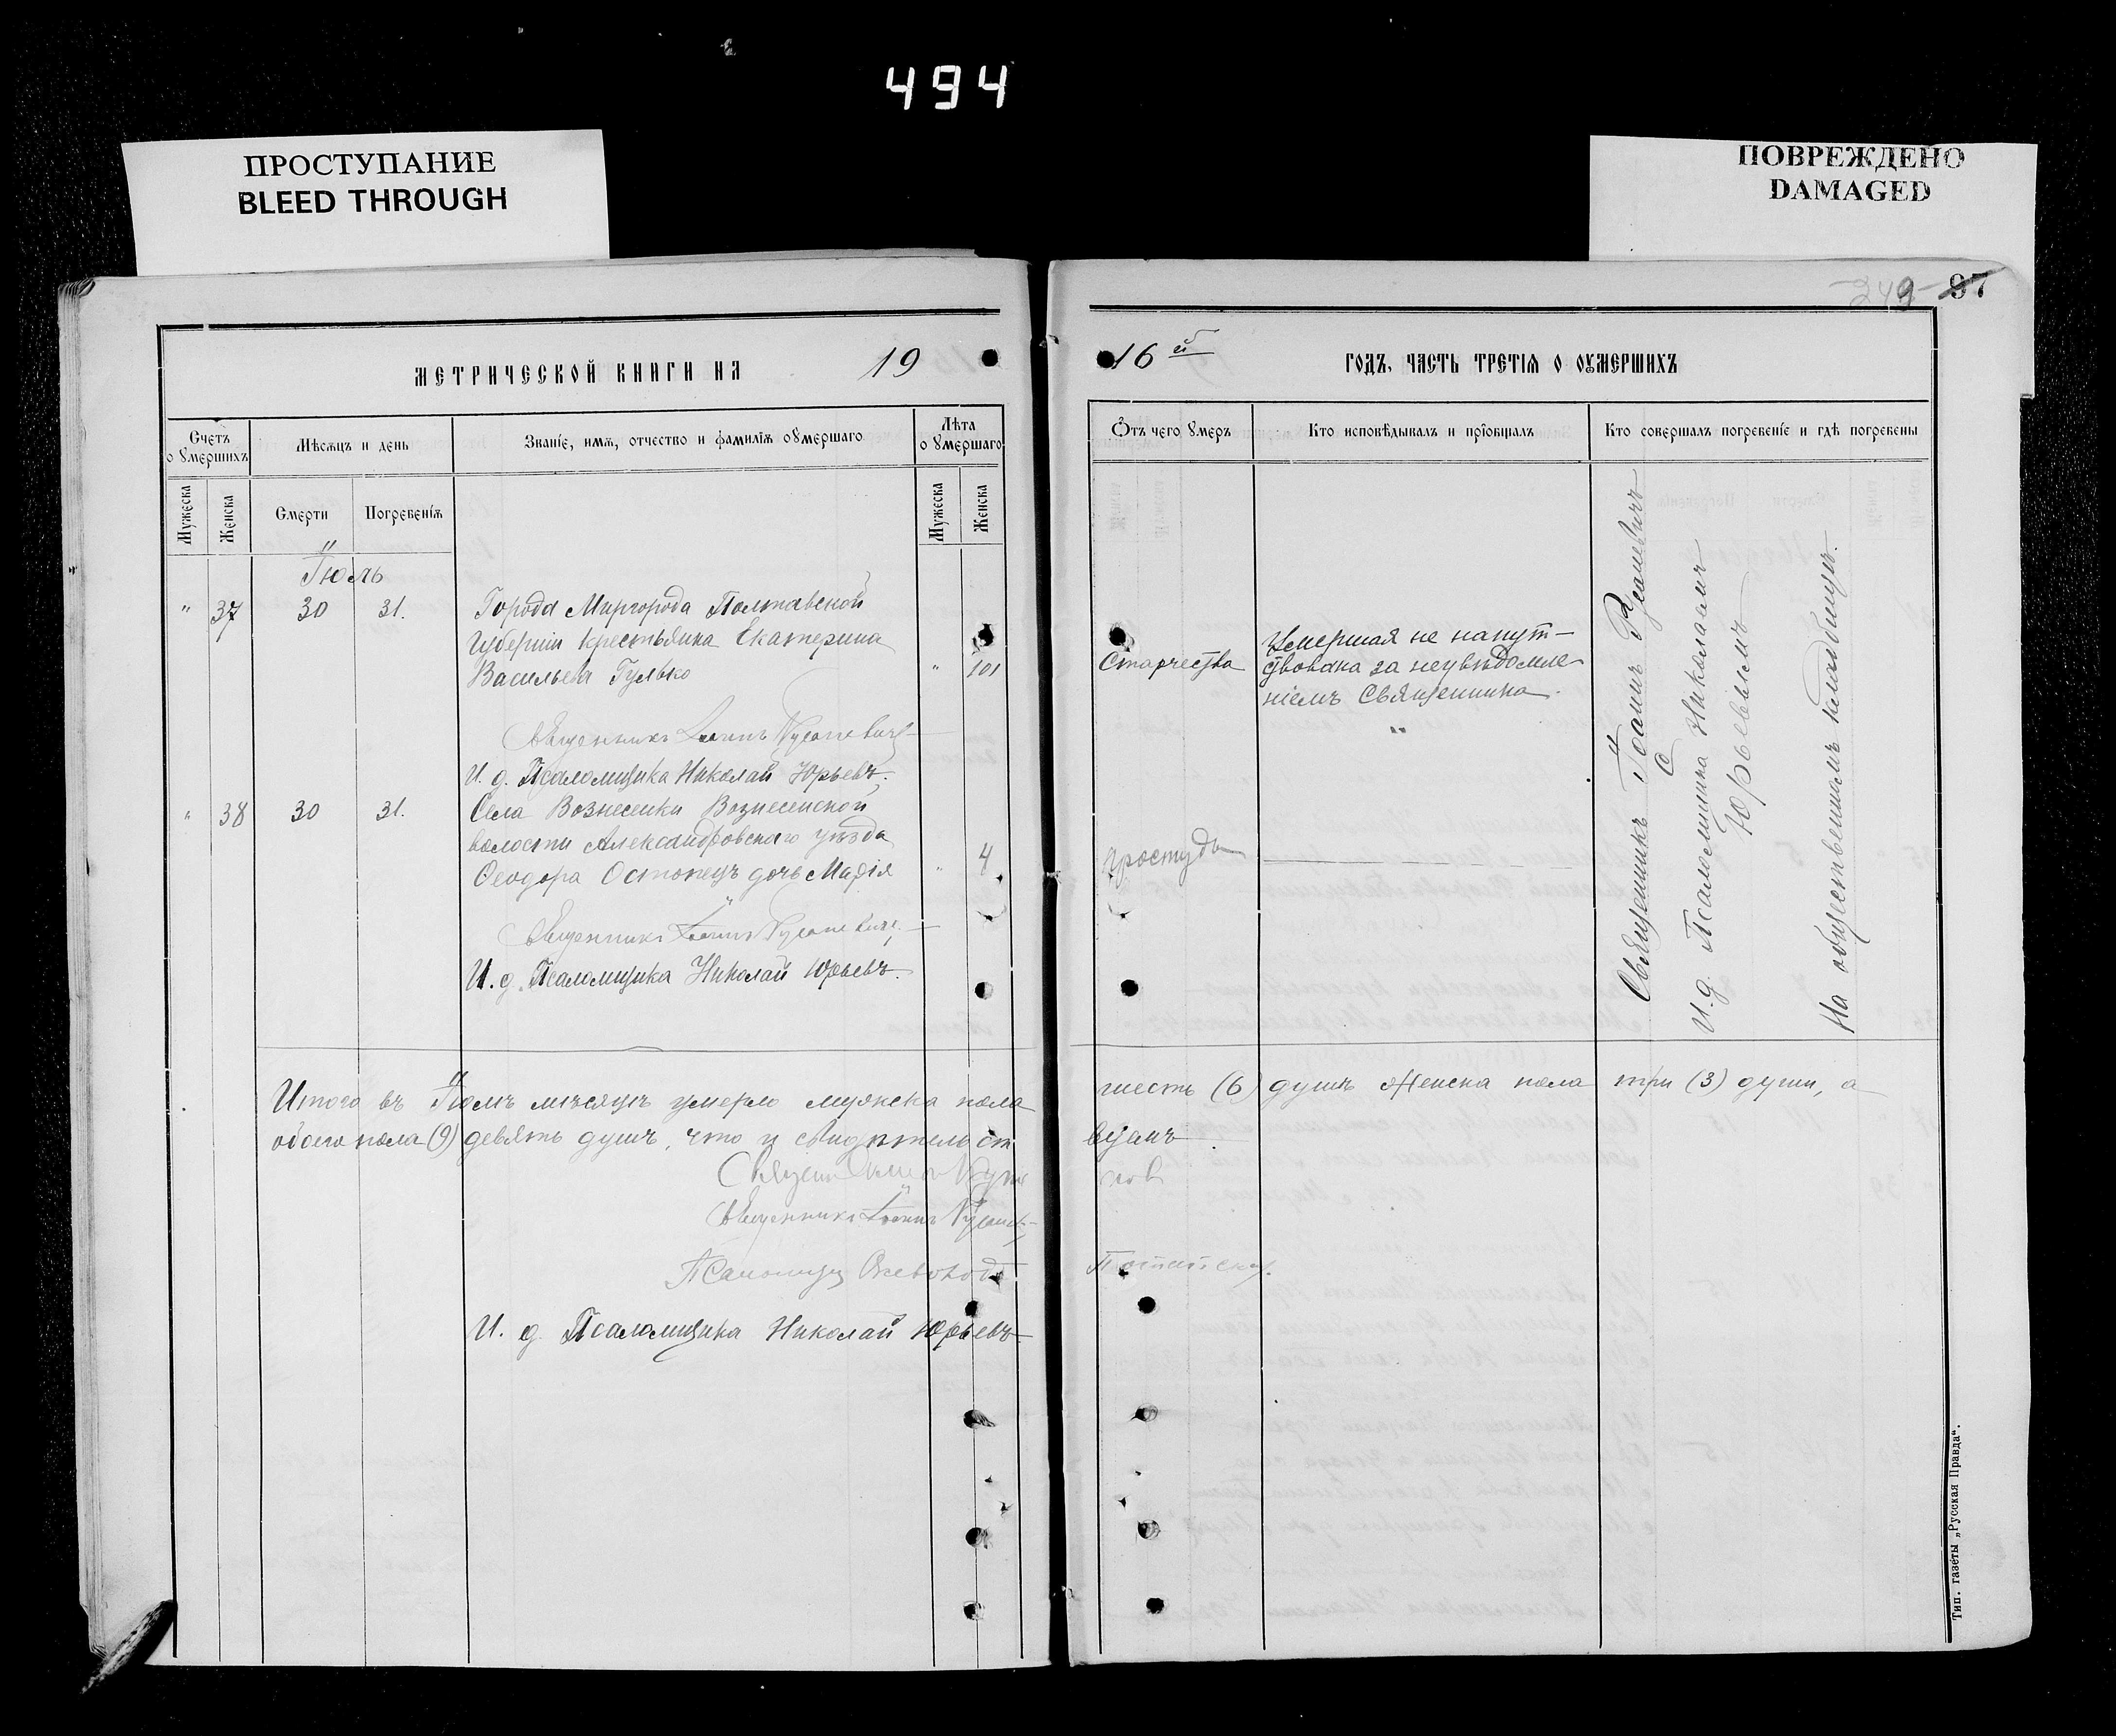 494
ПРОСТУПАНИЕ
BLEED THROUGH
ПОВРЕЖДЕНО
DAMAGED
249 97
МЕТРИЧЕСКОЙ КНИГИ НА 19
Счетъ оумершихъ
Мѣсяцъ и день
Званіе, имя, отчество и фамилія оумершаго
Лѣта оумершаго
Мужеска
Женска
Смерти
Погребенія
Мужеска
Женска
Іюль
" 37 30 31. Города Миргорода Полтавской
Губерніи крестьянка Екатерина
Васильева Гулько " 101
Священникъ Іоаннъ
И. д. Псаломщика Николай Юрьевъ.
" 38 30 31. Села Вознесенки Вознесенской
волости Александровскаго уѣзда
Ѳеодора Остопецъ дочь Марія " 4
Священникъ Іоаннъ
И. д. Псаломщика Николай Юрьевъ.
Итого въ Іюлѣ мѣсяцѣ умерло мужска пола
обоего пола (9) девять душъ, что и свидѣтельст
Священникъ Іоаннъ
Псаломщ
И. д. Псаломщика Николай Юрьевъ
16й ГОДЪ, ЧАСТЬ ТРЕТІЯ О ОУМЕРШИХЪ
Отъ чего умеръ
Кто исповѣдывалъ и пріобщалъ
Кто совершалъ погребеніе и гдѣ погребены
Старчества
Умершая не напут-
ствована за неувѣдомле-
ніемъ Священника.
"
Простуды
Священникъ Іоаннъ
с
И. д. Псаломщика Николаемъ
Юрьевымъ
На общественномъ кладбищѣ.
шесть (6) душъ женска пола три (3) души, а
вуемъ
Тип. газеты „Русская Правда".